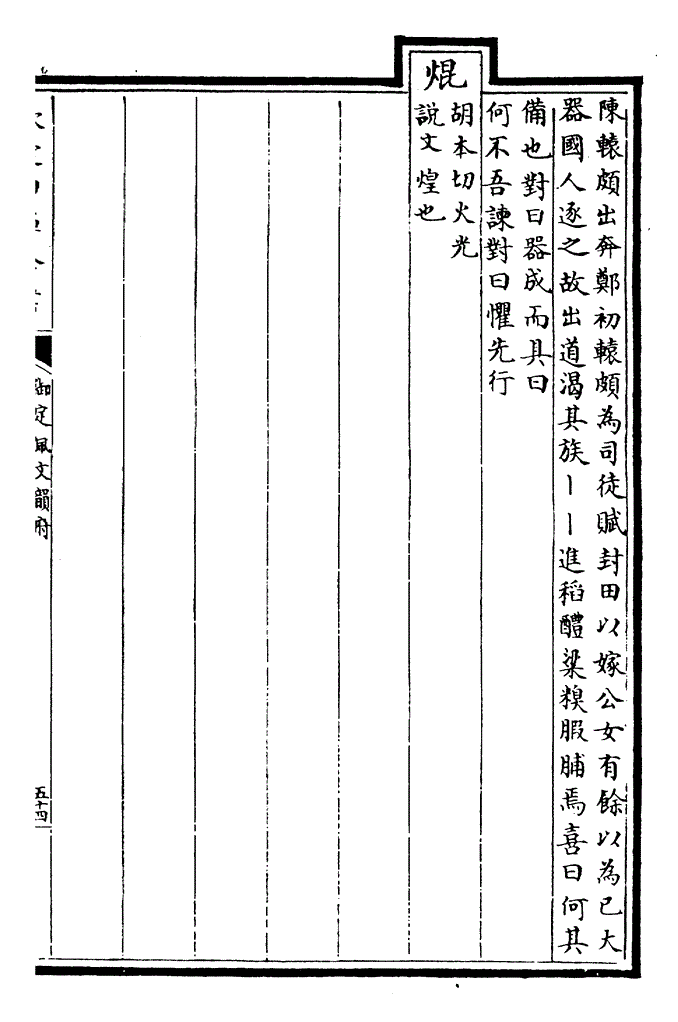 陳轅頗出奔鄭初轅頗為司徒賦封田以嫁公女有餘以為已大
器國人逐之故出道渴其族丨丨進稻醴粱糗腶脯焉喜曰何其
備也對曰器成而具曰
何不吾諫對曰懼先行
焜
胡本切火光
說文煌也
御定佩文韻府
五十四